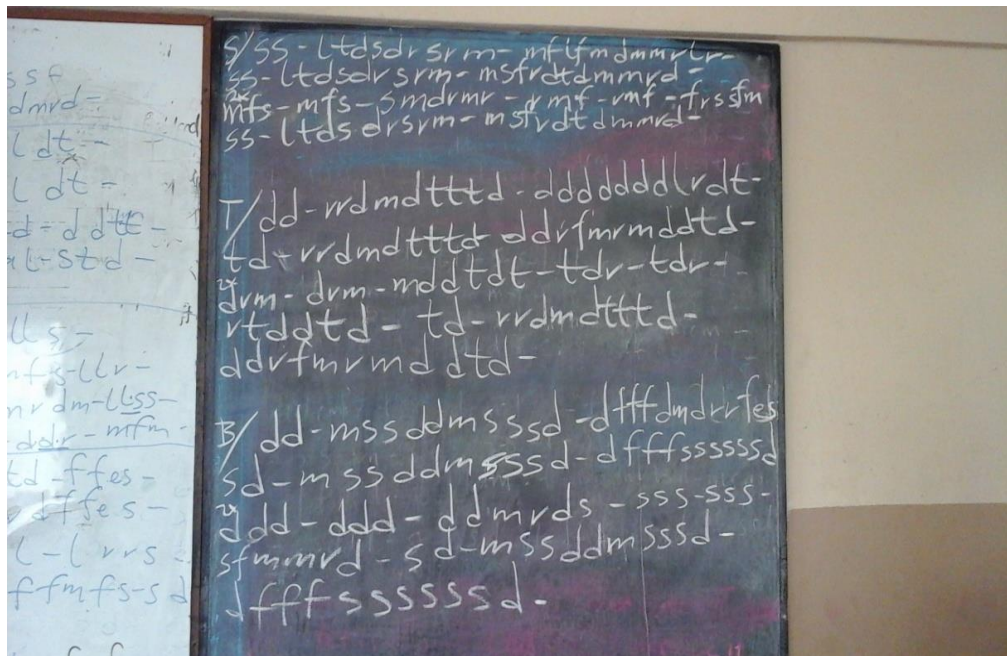 ssf
dmrd-
l dt -
l dt -
-d-d dtt -
al-std -
lls -
mfs-llr-
mrdm-llss-
-ddr-mfm-
td-ffes-
dffes-
l-lrrs
ffmfs-sd
S/ss-ltdsdrsrm-mflfmdmmrlr-
ss-ltdsdrsrm-msfrdtdmmrd-
2x
mfs-mfs-smdrmr-rmf-rmf-frssfm
ss-ltdsdrsrm-msfrdtdmmrd-
T/dd-rrdmdtttd-dddddddlrdt-
td-rrdmdtttd-ddrfmrmddtd-
2x
drm-drm-mddtdt-tdr-tdr-
rtddtd-td-rrdmdtttd-
ddrfmrmddtd-
B/dd-mssddmsssd-dfffdmdrrfes
sd-mssddmsssd-dfffssssssd
2x
ddd-ddd-ddmrds-sss-sss-
sfmmrd-sd-mssddmsssd-
dfffssssssd-